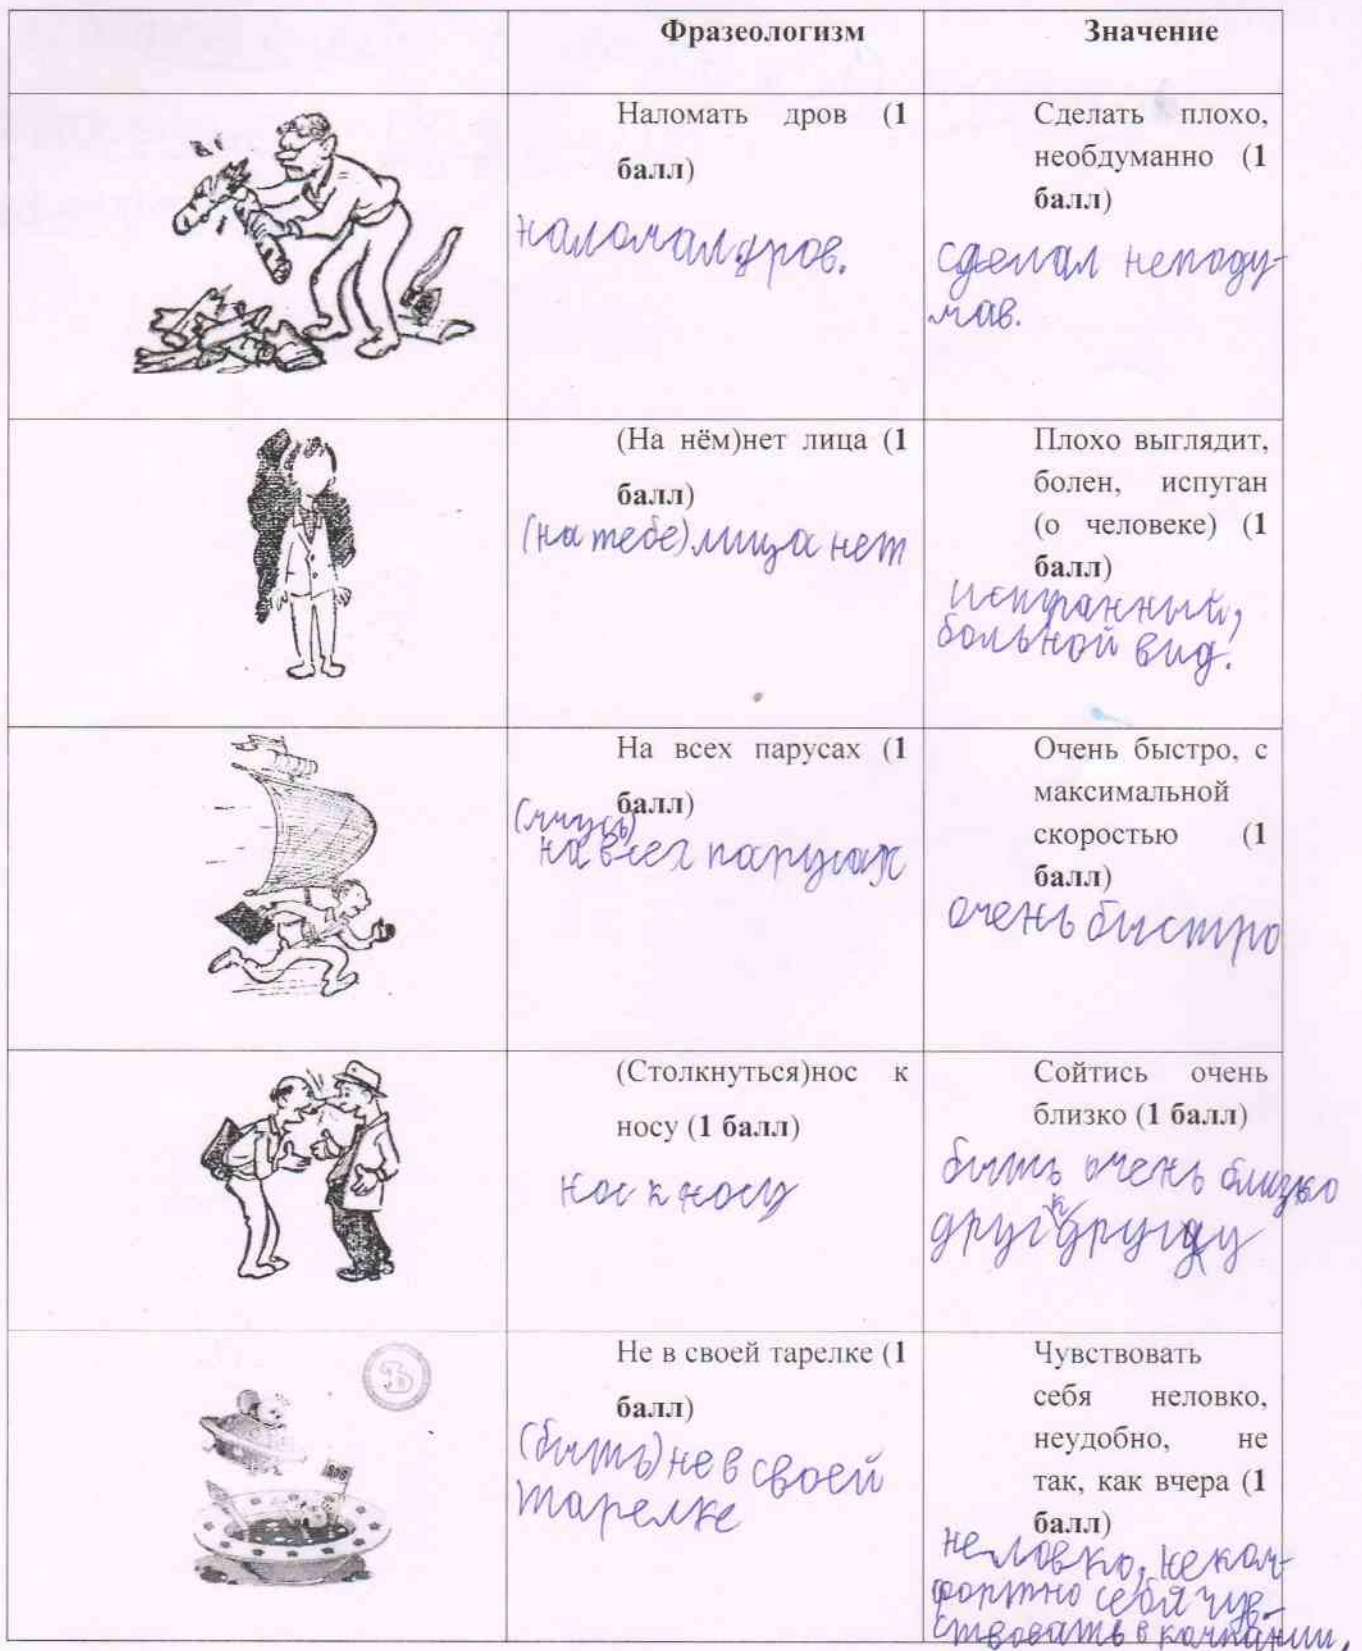 Фразеологизм
Значение
Наломать дров (1
балл)
наломал дров.
Сделать плохо,
необдуманно (1
балл)
сделал неподу-
мав.
(На нём)нет лица (1
балл)
(на тебе) лица нет
Плохо выглядит,
болен, испуган
(о человеке) (1
балл)
больной вид.
На всех парусах (1
балл)
(мчусь)
на всех парусах
Очень быстро, с
максимальной
скоростью (1
балл)
очень быстро
(Столкнуться)нос к
носу (1 балл)
нос к носу
Сойтись очень
близко (1 балл)
быть очень близко
друг к другу
SOS
Ъ
Не в своей тарелке (1
балл)
(быть) не в своей
тарелке
Чувствовать
себя неловко,
неудобно, не
так, как вчера (1
балл)
неловко, неком-
фортно себя чув-
ствовать в компании,